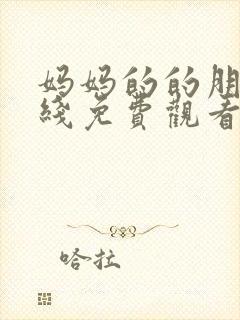 妈妈的的朋
綫免費觀看
哈拉